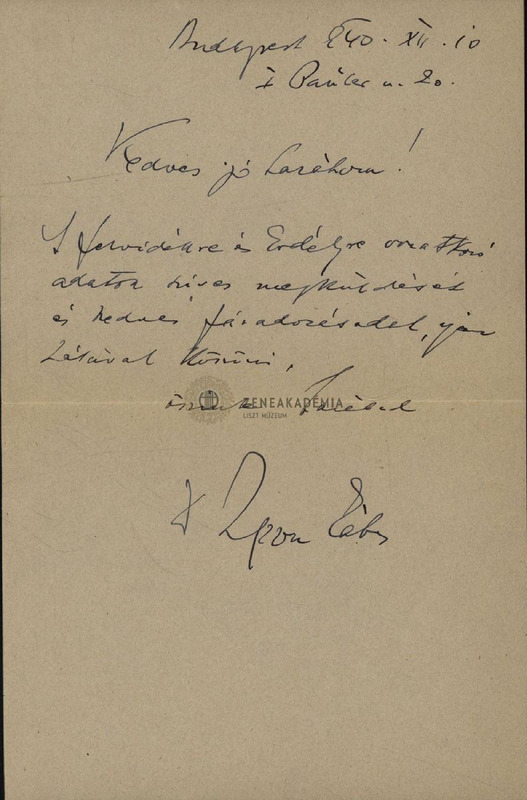 Budapest 940. XII. 10
I Pauler u. 20.
Kedves jó barátom!
A felvidékre és Erdélyre vonatkozó
adatok szives megküldését
és kedves fáradozásodat, igaz
hálával köszöni,
ZENEAKADÉMIA
LISZT MÚZEUM
barátod